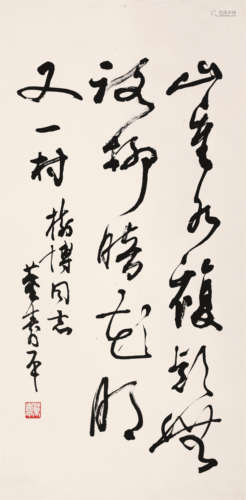 山重水複疑無
路柳暗花明
又一村
樹博同志
董寿平